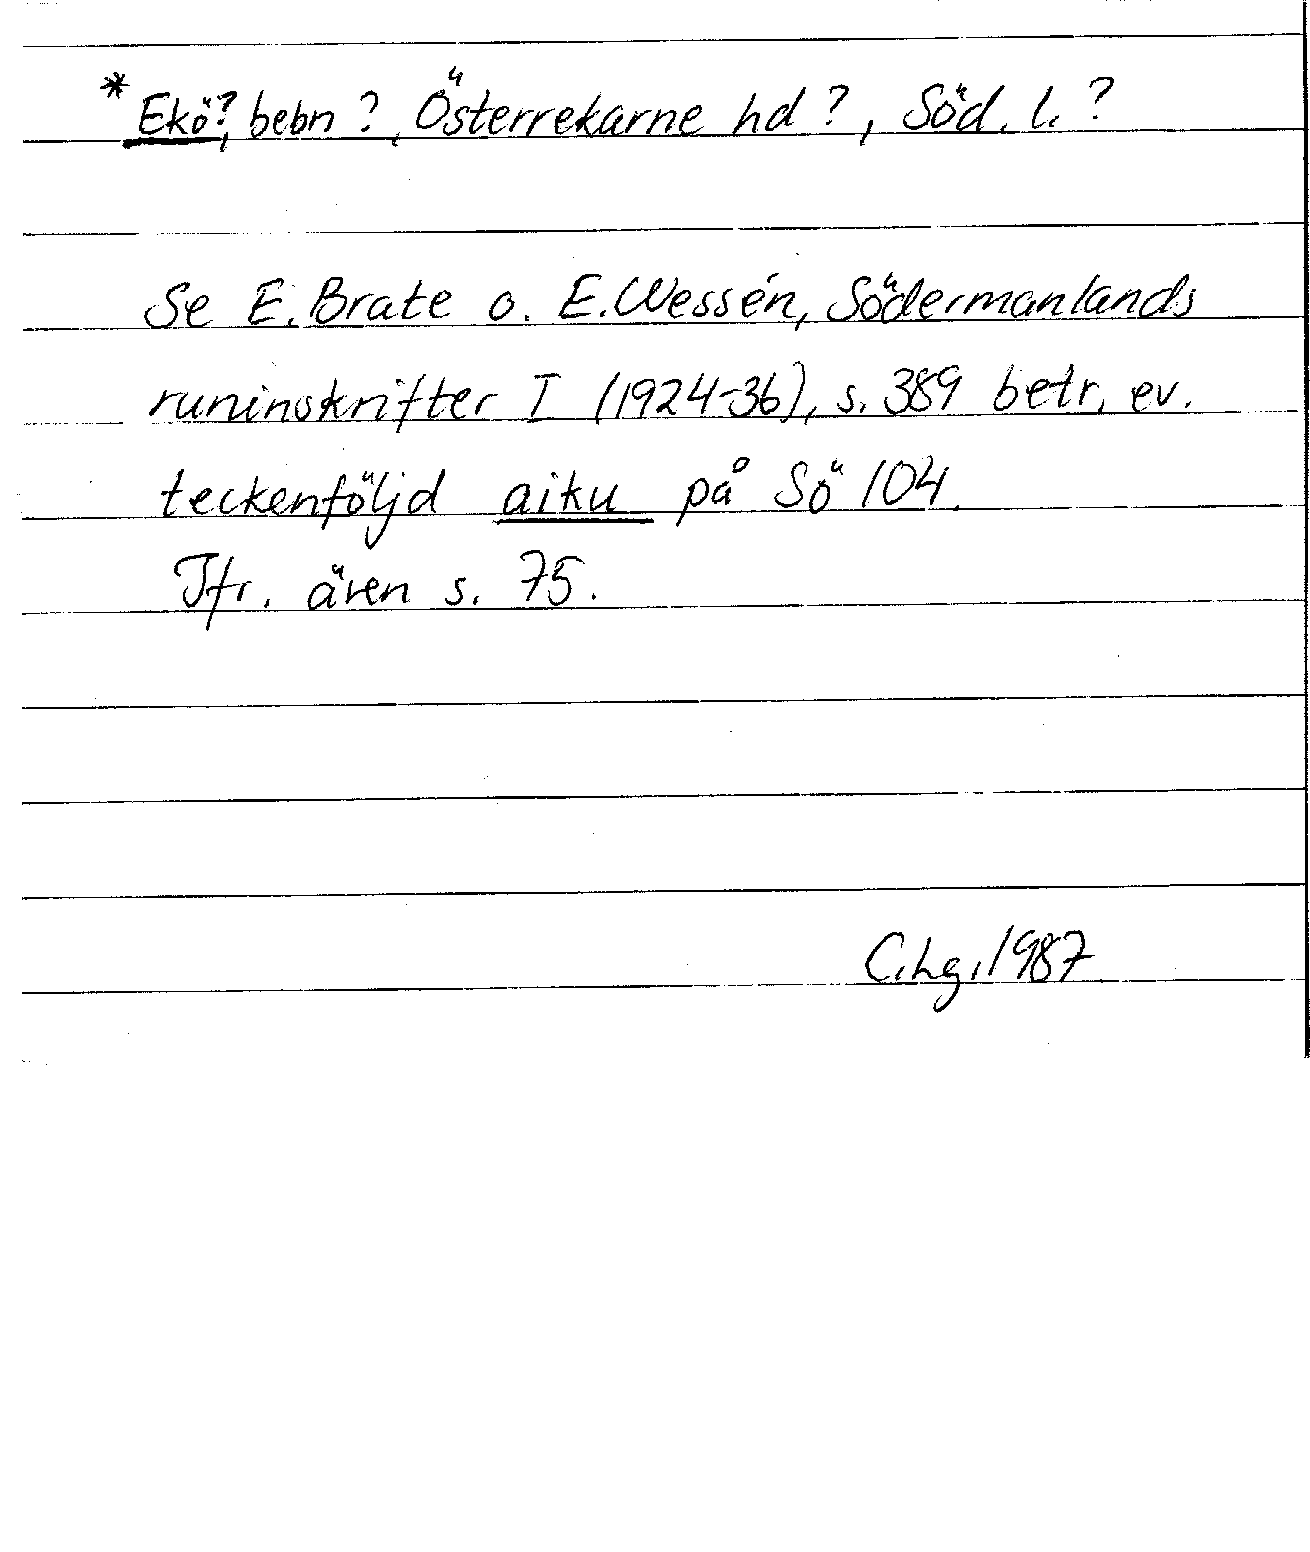 *Ekö?, bebn ?, Österrekarne hd ?, Söd. l. ?
Se E. Brate o. E. Wessén, Södermanlands
runinskrifter I (1924-36), s. 389 betr. ev.
teckenföljd aiku på Sö 104.
Jfr. även s. 75.
C.Lg. 1987